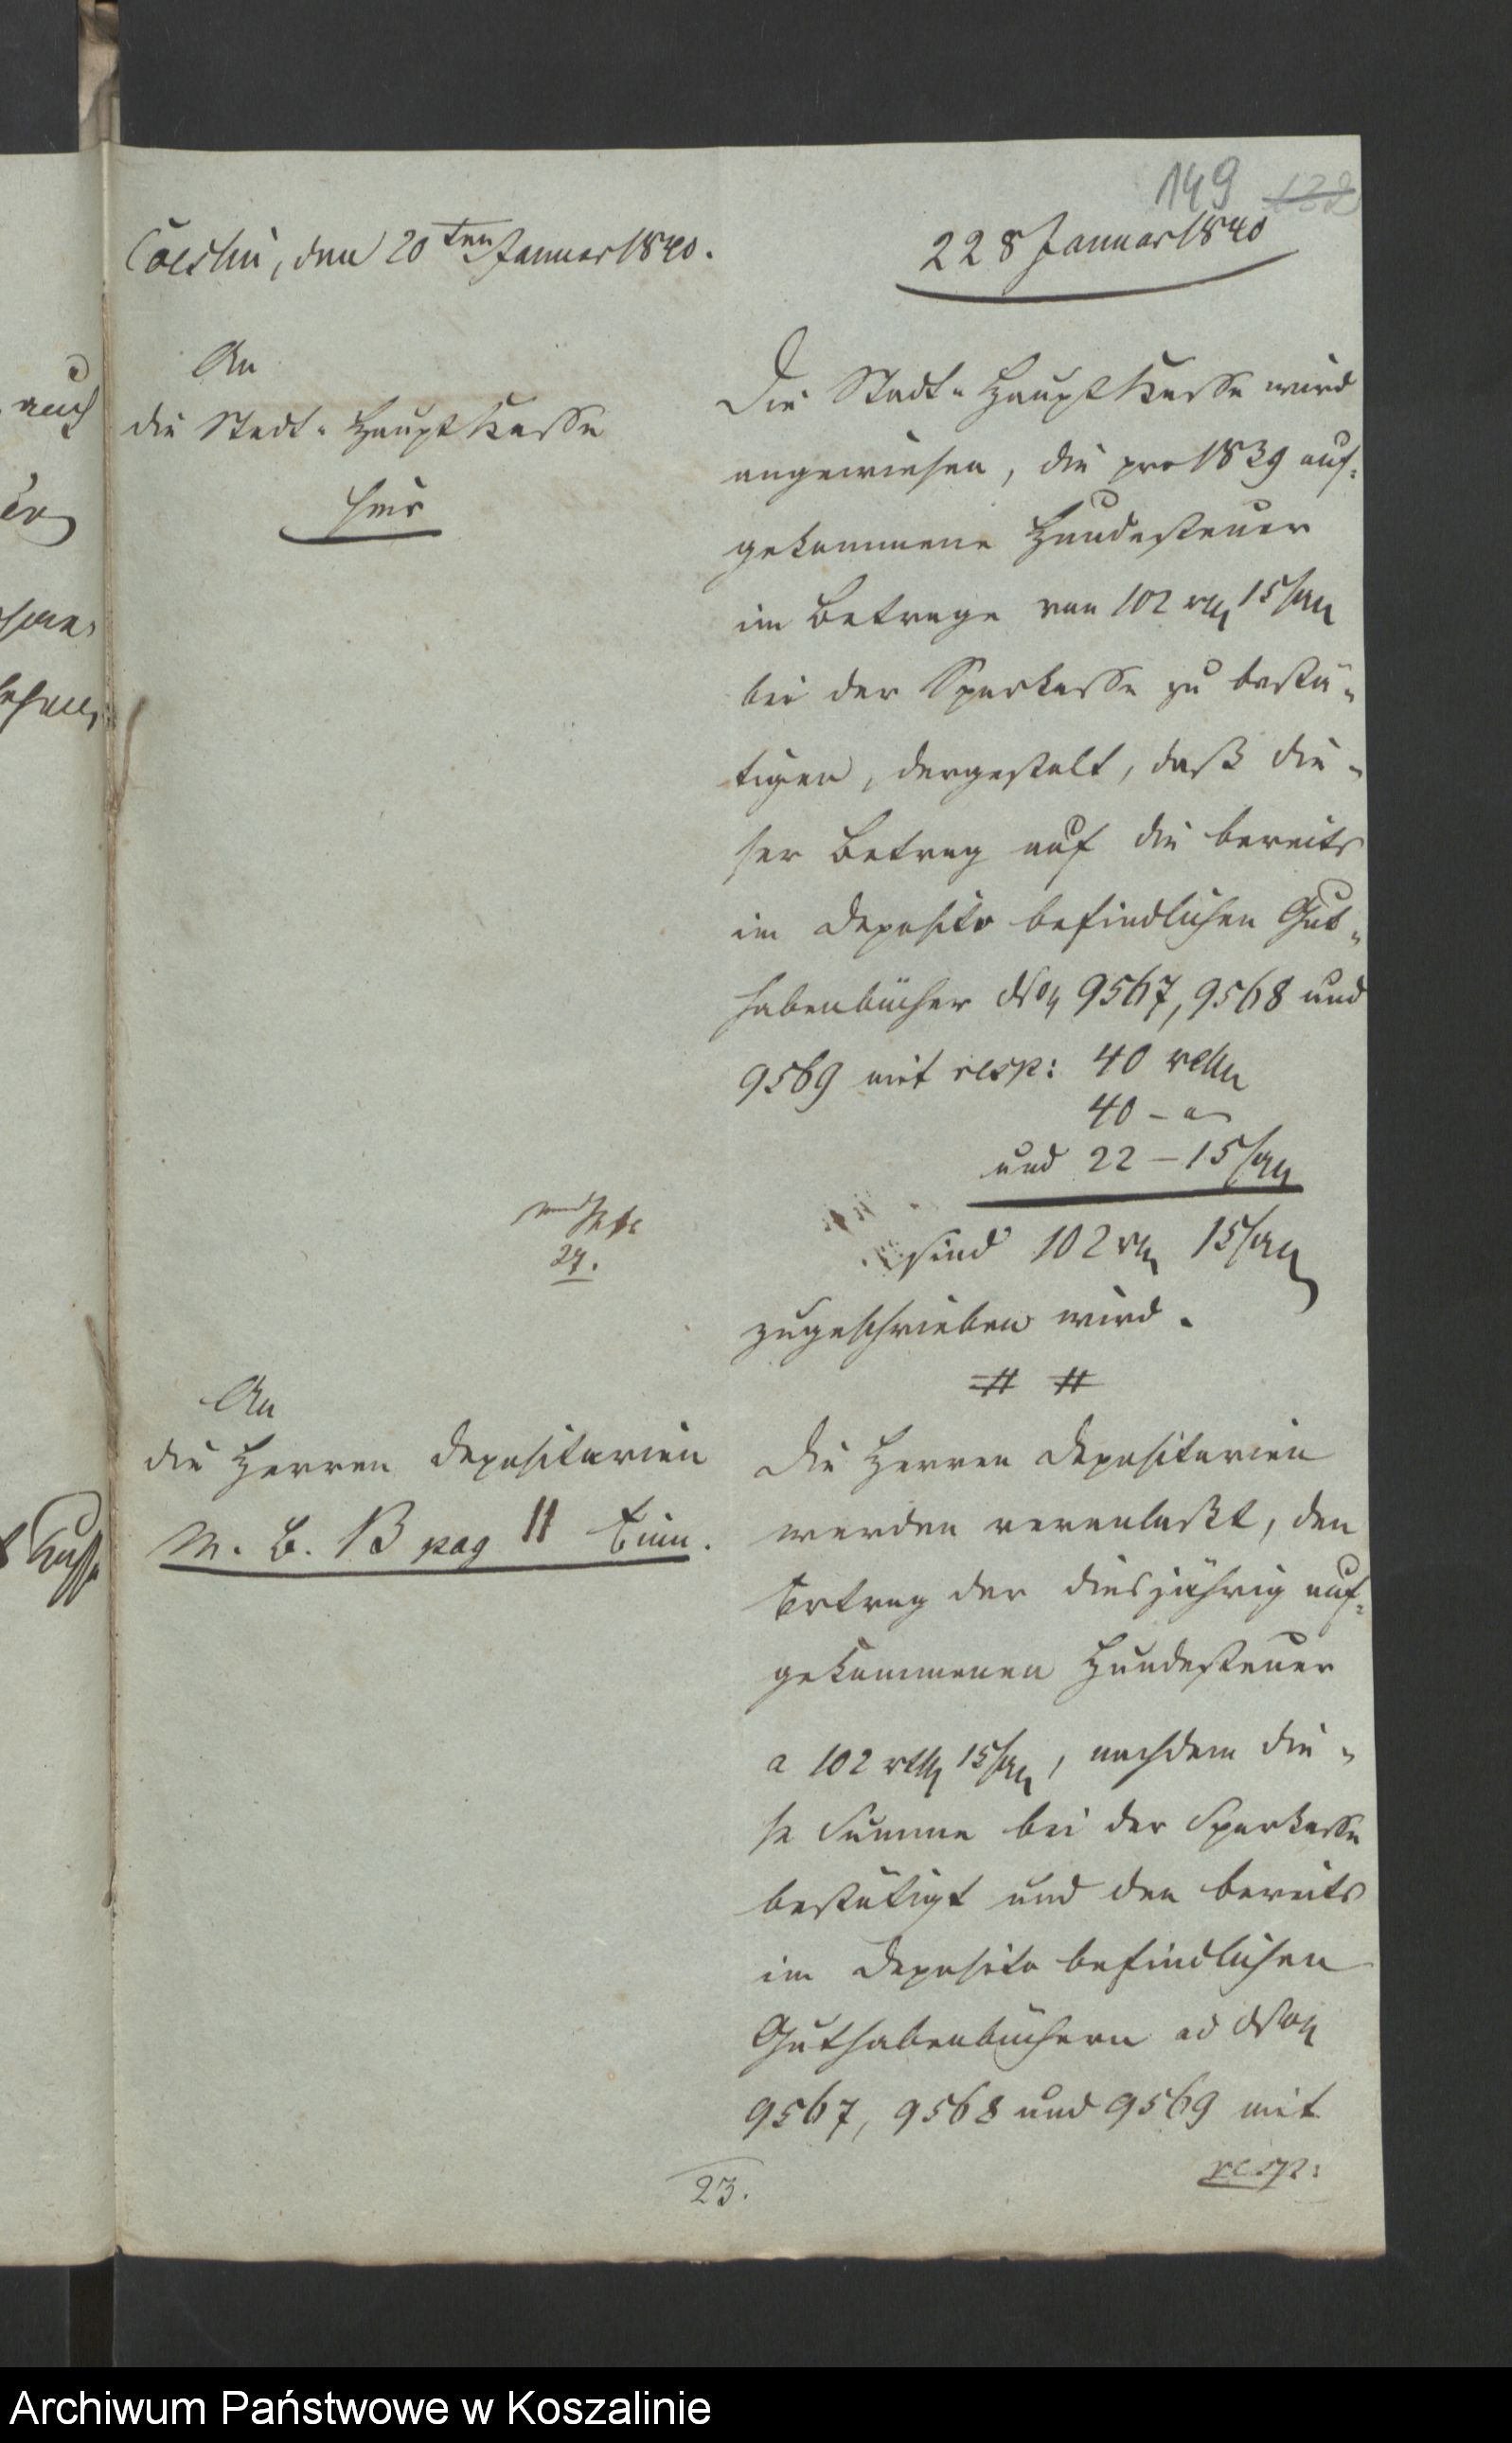 149 132
Coeslin, den 20ten Januar 1840.
228 Januar 1840
An
die Stadt-Haupt Kasse
hier
Die Stadt-Haupt Kasse wird
angewiesen, die pro 1839 auf-
gekommene Hundesteuer
im Betrage von 102 rth 15 sgr
bei der Sparkasse zu bestä-
tigen, dergestalt, daß die-
ser Betrag auf die bereits
im Deposito befindlichen Gut-
habenbücher No 9567, 9568 und
9569 mit resp: 40 rthr
40 - "
und 22 - 15 sgr
sind 102 rth 15 sgr
zugeschrieben wird.
27.
An
die Herren Depositarien
M. B. B pag 11 Einn.
Die Herren Depositarien
werden veranlaßt, den
Ertrag der diesjährig auf-
gekommenen Hundesteuer
a 102 rth 15 sgr, nachdem die-
se Summe bei der Sparkasse
bestätigt und den bereits
im Deposito befindlichen
Guthabenbüchern ad No
9567, 9568 und 9569 mit
resp:
23.
auch
Kasse
Archiwum Państwowe w Koszalinie